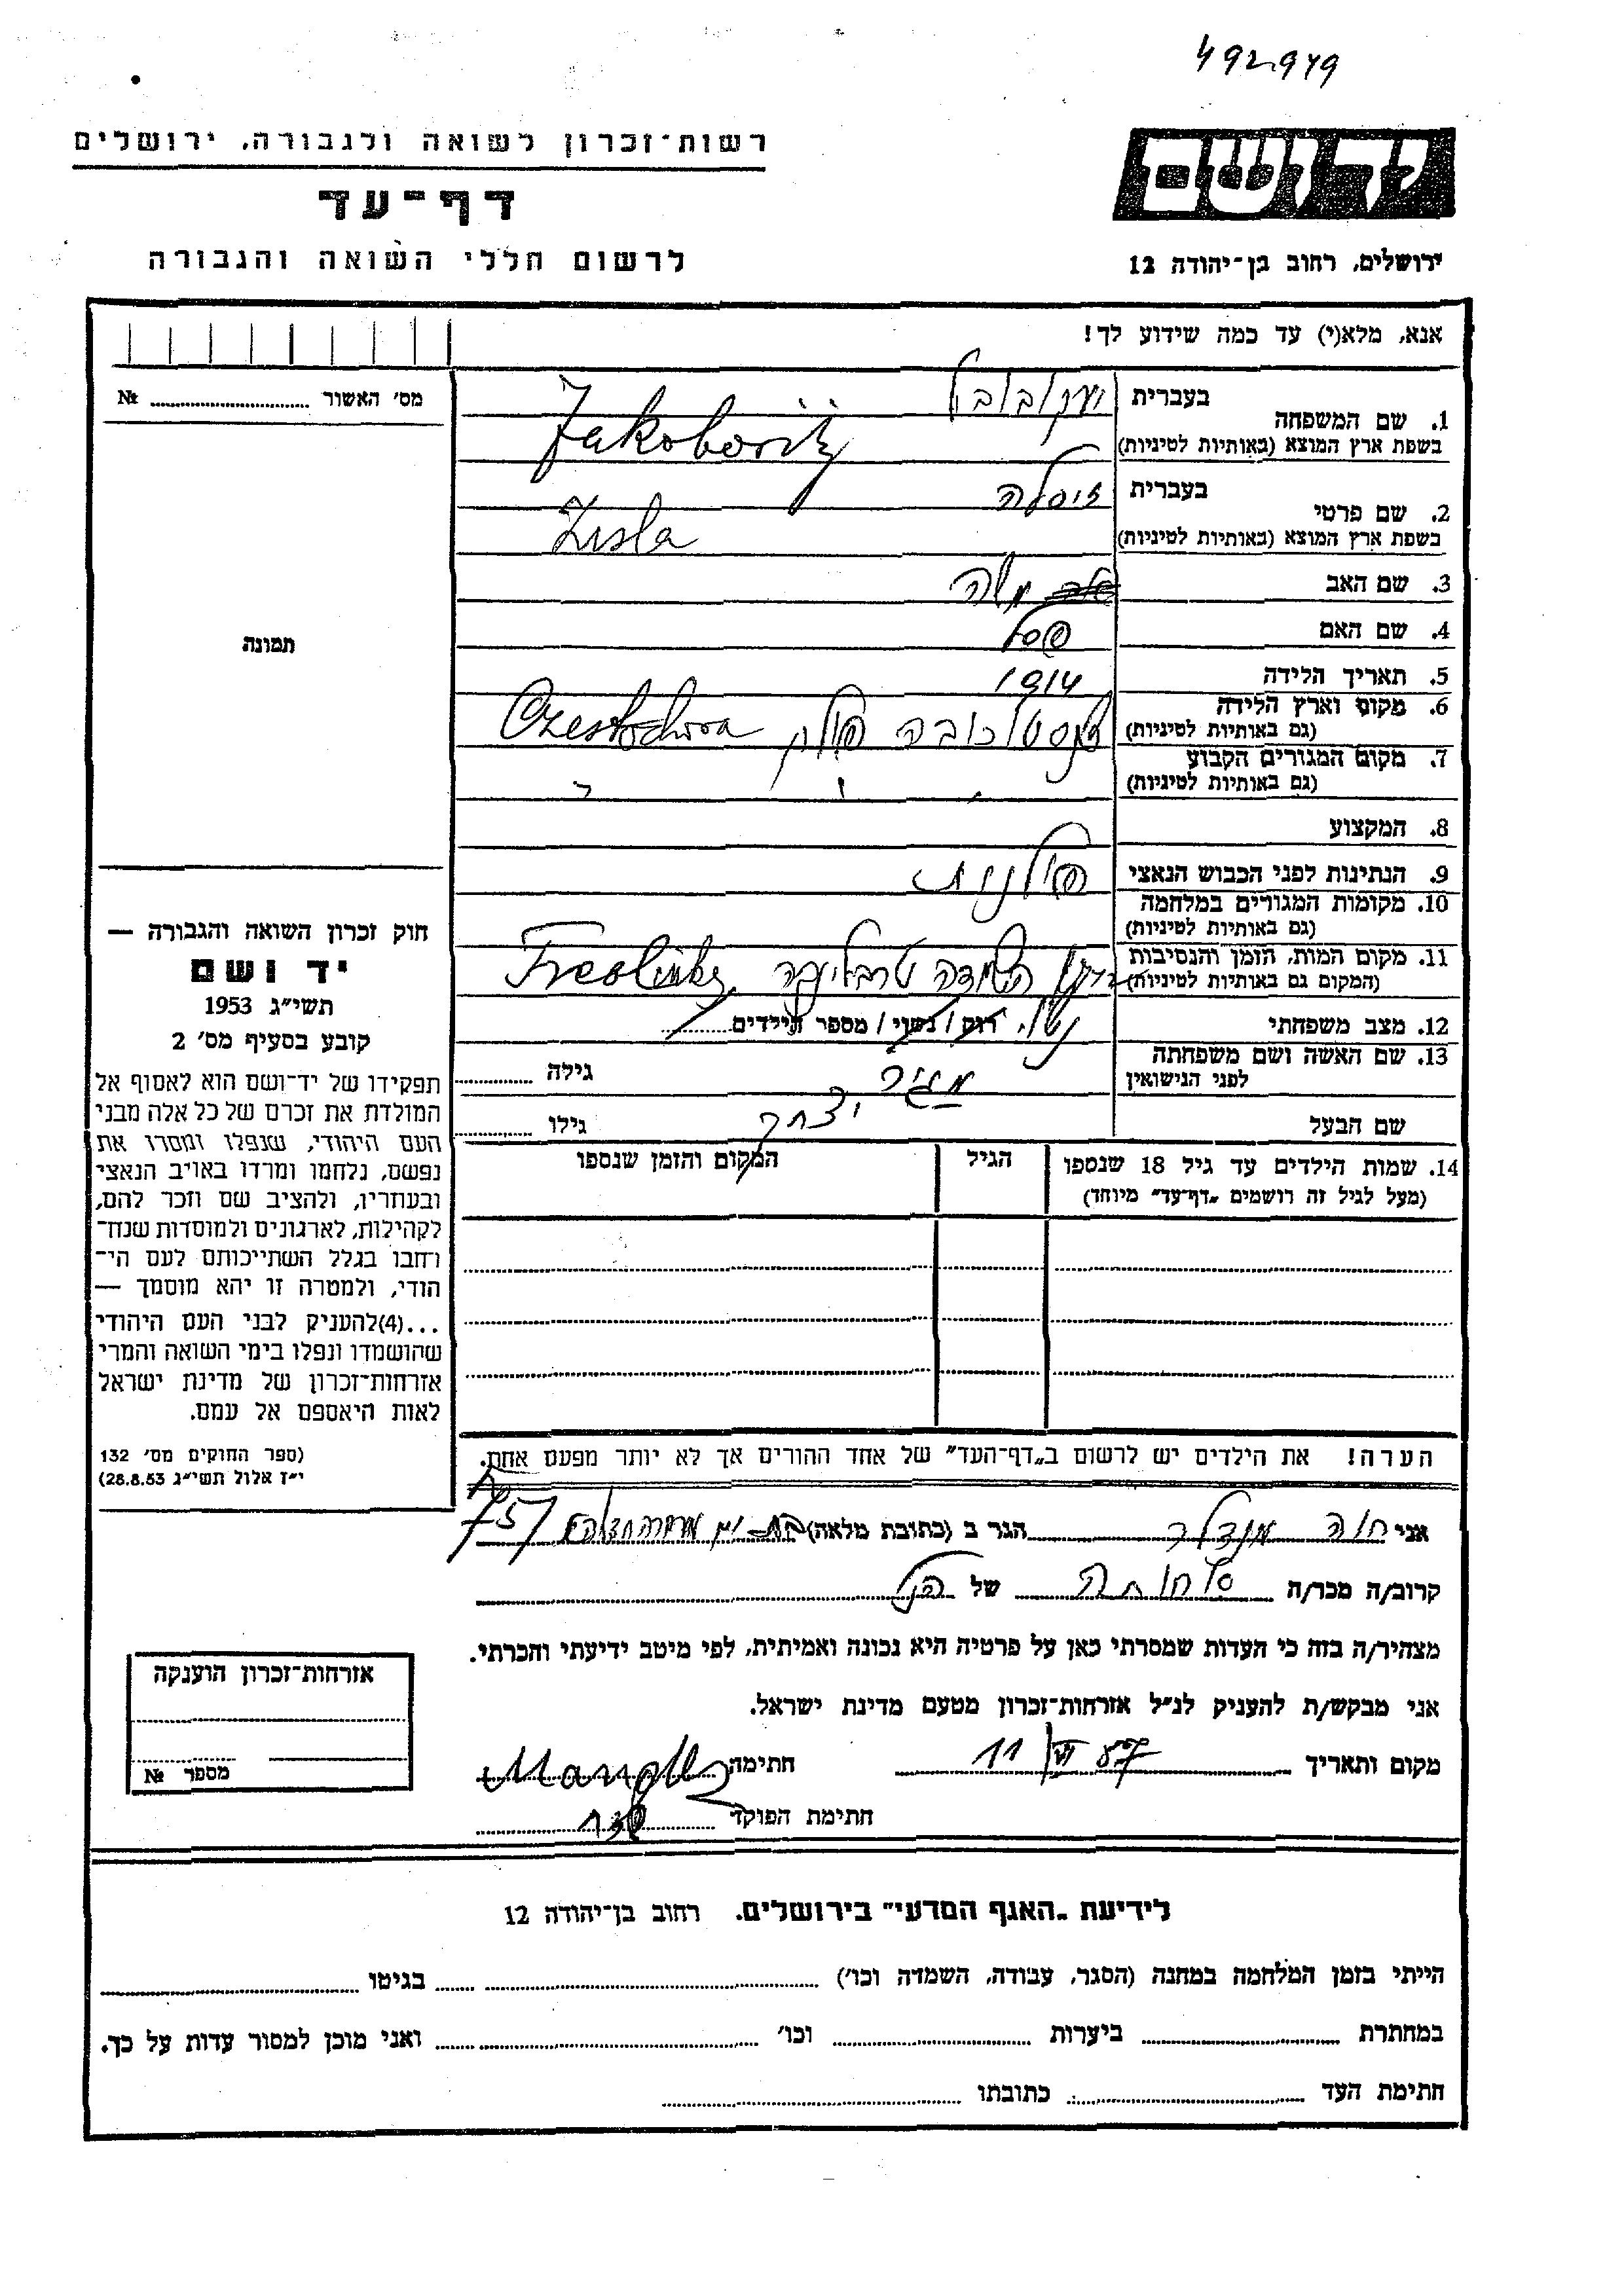 492979
רשות-זכרון לשואה ולגבורה, ירושלים
דף-עד
לרשום חללי השואה והגבורה
ידושם
ירושלים, רחוב בן-יהודה 12
אנא, מלא(י) עד כמה שידוע לך!
מס' האשור № 
תמונה
חוק זכרון השואה והגבורה —
יד ושם
תשי"ג 1953
קובע בסעיף מס' 2
תפקידו של יד-ושם הוא לאסוף אל
המולדת את זכרם של כל אלה מבני
העם היהודי, שנפלו ומסרו את
נפשם, נלחמו ומרדו באויב הנאצי
ובעוזריו, ולהציב שם וזכר להם,
לקהילות, לארגונים ולמוסדות שנח-
רחבו בגלל השתייכותם לעם הי-
הודי, ולמטרה זו יהא מוסמך —
...(4)להעניק לבני העם היהודי
שהושמדו ונפלו בימי השואה והמרי
אזרחות-זכרון של מדינת ישראל
לאות היאספם אל עמם.
(ספר החוקים מס' 132
י"ז אלול תשי"ג 28.8.53)
1. שם המשפחה בעברית יעקובוביץ
בשפת ארץ המוצא (באותיות לטיניות) Jakobovitz
2. שם פרטי בעברית זיסלה
בשפת ארץ המוצא (באותיות לטיניות) Zisla
3. שם האב משה
4. שם האם פסל
5. תאריך הלידה 1914
6. מקום וארץ הלידה (גם באותיות לטיניות) צ'נסטוכובה פולין Czestochova
7. מקום המגורים הקבוע (גם באותיות לטיניות) " " "
8. המקצוע
9. הנתינות לפני הכבוש הנאצי פולנית
10. מקומות המגורים במלחמה (גם באותיות לטיניות)
11. מקום המות, הזמן והנסיבות (המקום גם באותיות לטיניות) השמדה טרבלינקה Treblinka
12. מצב משפחתי נשוי רוק / נשוי / מספר הילדים
13. שם האשה ושם משפחתה לפני הנישואין גילה
שם הבעל יצחק גילו
14. שמות הילדים עד גיל 18 שנספו הגיל המקום והזמן שנספו
(מעל לגיל זה רושמים "דף-עד" מיוחד)
הערה! את הילדים יש לרשום ב"דף-העד" של אחד ההורים אך לא יותר מפעם אחת.
אני חוה מנדלר הגר ב (כתובת מלאה) בת-ים
קרוב/ה מכר/ה של הנ"ל
מצהיר/ה בזה כי העדות שמסרתי כאן על פרטיה היא נכונה ואמיתית, לפי מיטב ידיעתי והכרתי.
אני מבקש/ת להעניק לנ"ל אזרחות-זכרון מטעם מדינת ישראל.
מקום ותאריך 11 חתימה
חתימת הפוקד
אזרחות-זכרון הוענקה
מספר №
לידיעת "האגף המדעי" בירושלים. רחוב בן-יהודה 12
הייתי בזמן המלחמה במחנה (הסגר, עבודה, השמדה וכו') בגיטו
במחתרת ביערות וכו' ואני מוכן למסור עדות על כך.
חתימת העד כתובתו